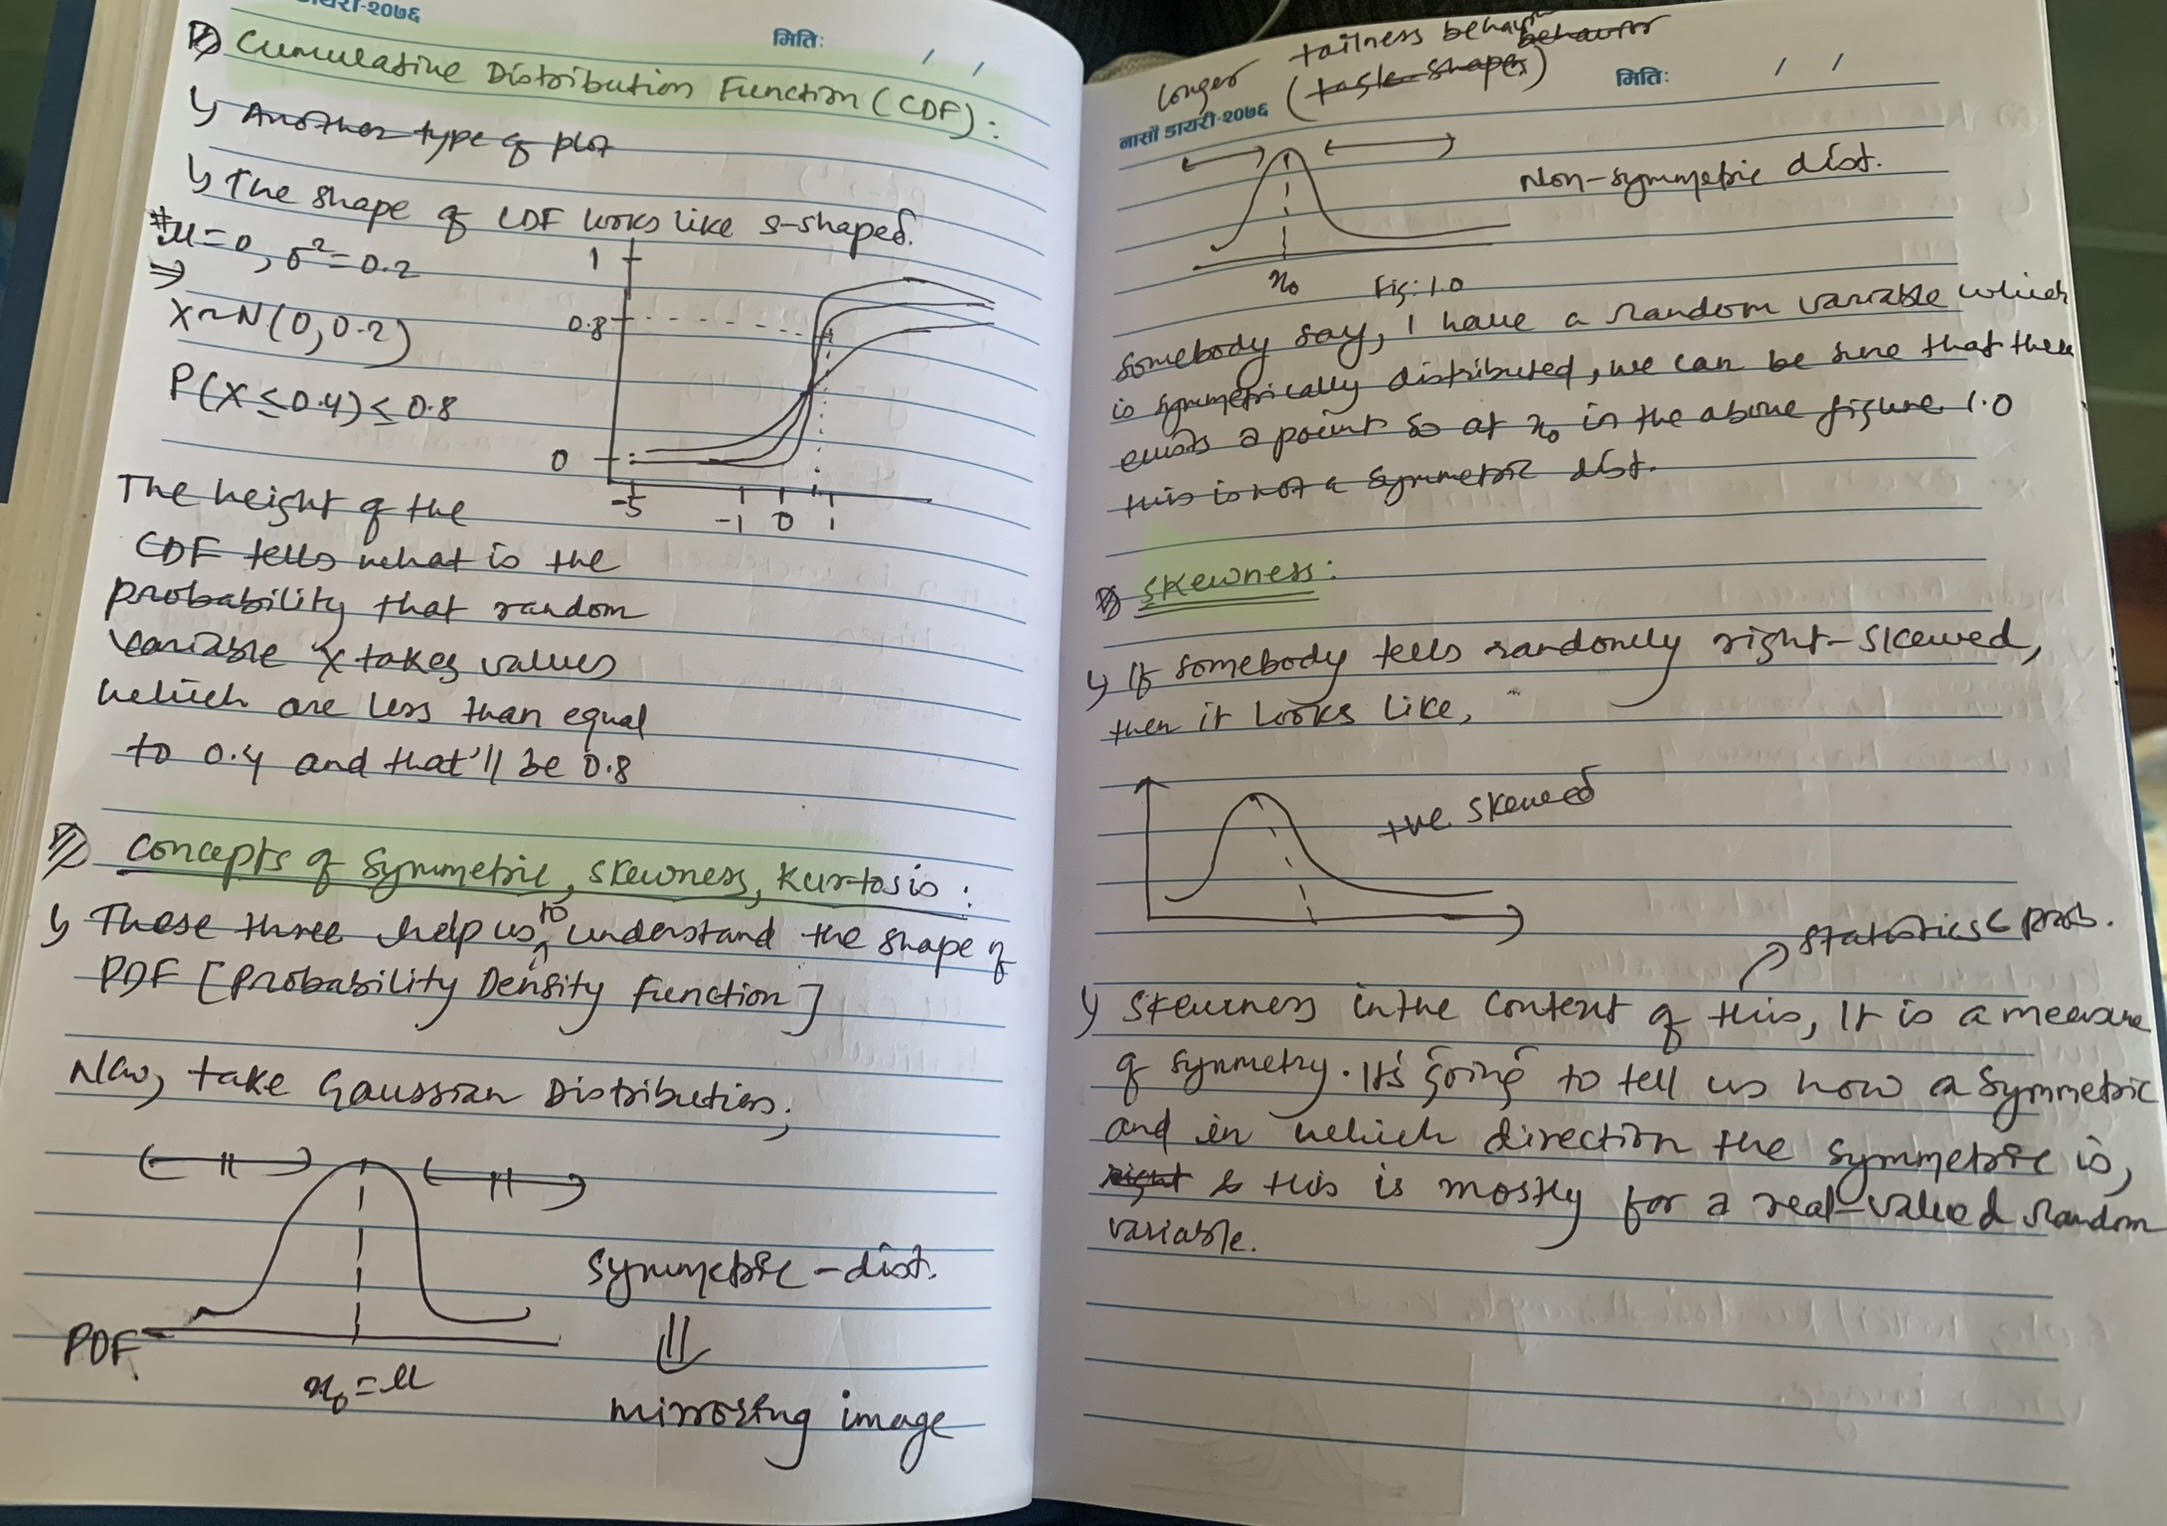 डायरी-२०७६
मितिः / /
Cumulative Distribution Function (CDF):
↳ Another type of plot
↳ The shape of CDF looks like s-shaped.
# μ=0, σ²=0.2
⇒
X~N(0,0.2)
P(X≤0.4)≤0.8
1
0.8
0
-5 -1 0 1
The height of the
CDF tells what is the
probability that random
variable X takes values
which are less than equal
to 0.4 and that'll be 0.8
Concepts of Symmetric, Skewness, Kurtosis:
↳ These three help us to understand the shape of
PDF [Probability Density Function]
Now, take Gaussian Distribution;
Symmetric-dist.
PDF
x₀=μ
mirroring image
longer tailness behavior behavior
shapes)
मितिः / /
नासाँ डायरी-२०७६
Non-symmetric dist.
x₀ Fig: 1.0
Somebody say, I have a random variable which
is symmetrically distributed, we can be sure that there
exists a point so at x₀ in the above figure 1.0
this is not a symmetric dist.
Skewness:
↳ If somebody tells randomly right-skewed,
then it looks like,
+ve skewed
statistics & prob.
↳ Skewness in the content of this, It is a measure
of symmetry. It's going to tell us how a symmetric
and in which direction the symmetric is,
right & this is mostly for a real-valued random
variable.